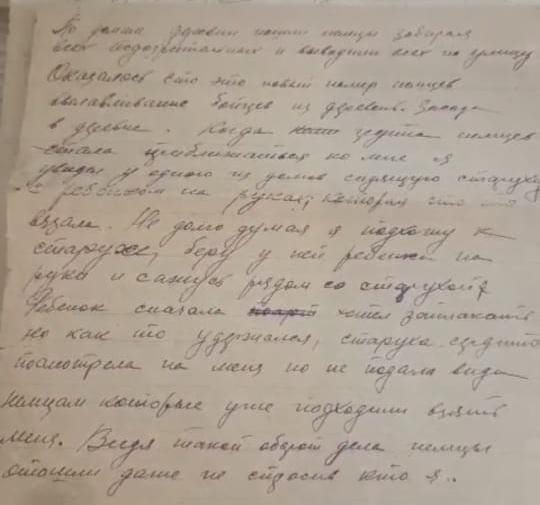 По домам деревни пошли немцы забирая
всех подозрительных и выводили всех на улицу
Оказалось что это новый номер немцев
вылавливание бойцев из деревень. Засада
в деревне. Когда группа немцев
стала приближаться ко мне я
увидел у одного из домов сидящую старуху
с ребенком на руках, которая что то
вязала. Не долго думая я подхожу к
старухе, беру у ней ребенка на
руки и сажусь рядом со старухой
Ребенок сначала хотел заплакать
но как то удержался, старуха сердито
посмотрела на меня но не подала вида
немцам которые уже подходили взять
меня. Видя такой оборот дела немцы
отошли даже не спросив кто я..